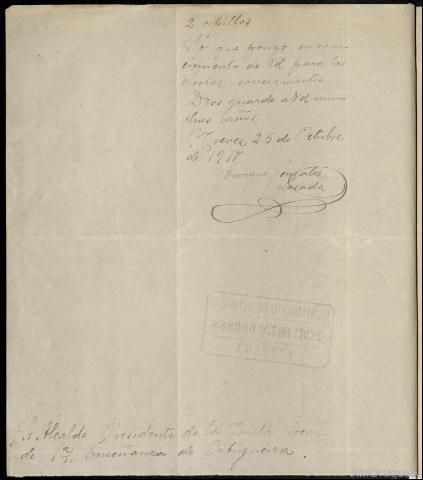 2 cepillos
Lo que pongo en cono-
cimiento de Vd para los
efectos consiguientes
Dios guarde a Vd mu-
chos años
25 de Octubre
de 1917
Enrique González
Losada
AYUNTAMIENTO DE
OCT. 1917
Sr Alcalde Presidente de la Junta local
de 1ª Enseñanza de Ortigueira.